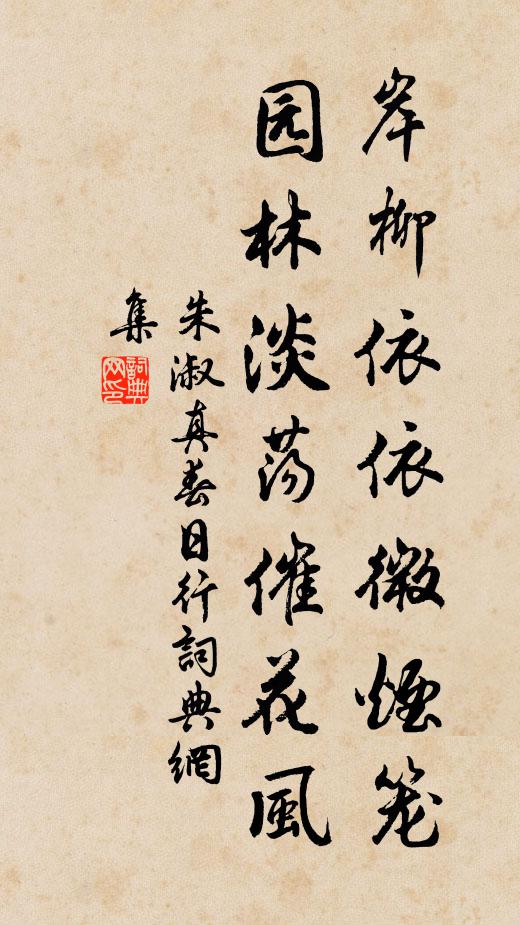 岸柳依依微煙笼
园林淡荡催花風
朱淑真春日行詞典網
集
詞典网印